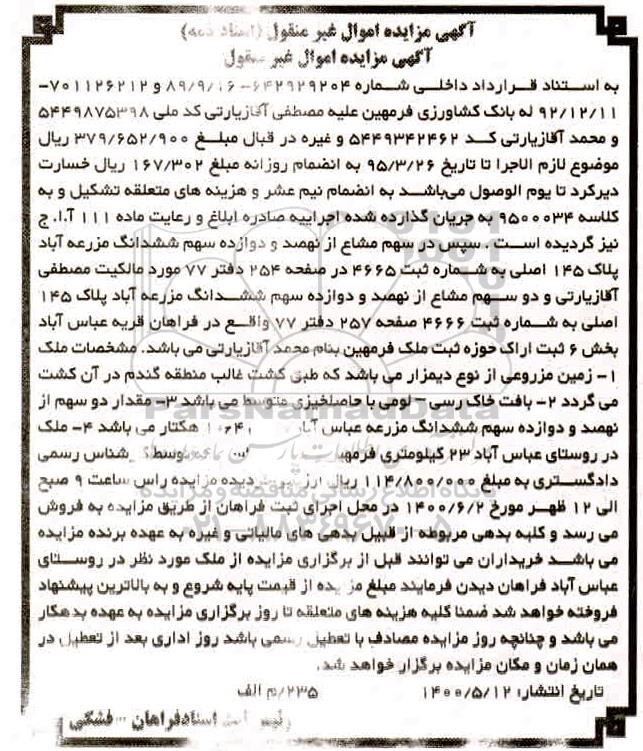 آگهی مزایده اموال غیر منقول (اسناد ذمه)
آگهی مزایده اموال غیر منقول
به استناد قرارداد داخلی شماره ۶۴۲۹۲۹۲۰۴- ۸۹/۹/۱۶ و ۷۰۱۱۲۶۲۱۲-
۹۲/۱۲/۱۱ له بانک کشاورزی فرمهین علیه مصطفی آقازیارتی کد ملی ۵۴۴۹۸۷۵۳۹۸
و محمد آقازیارتی کد ۵۴۴۹۳۴۲۴۶۲ و غیره در قبال مبلغ ۳۷۹/۶۵۲/۹۰۰ ریال
موضوع لازم الاجرا تا تاریخ ۹۵/۳/۲۶ به انضمام روزانه مبلغ ۱۶۷/۳۰۲ ریال خسارت
دیرکرد تا یوم الوصول می‌باشد به انضمام نیم عشر و هزینه های متعلقه تشکیل و به
کلاسه ۹۵۰۰۰۳۴ به جریان گذارده شده اجراییه صادره ابلاغ و رعایت ماده ۱۱۱ آ.ا. ج
نیز گردیده است . سپس در سهم مشاع از نهصد و دوازده سهم ششدانگ مزرعه آباد
پلاک ۱۴۵ اصلی به شماره ثبت ۴۶۶۵ در صفحه ۲۵۴ دفتر ۷۷ مورد مالکیت مصطفی
آقازیارتی و دو سهم مشاع از نهصد و دوازده سهم ششدانگ مزرعه آباد پلاک ۱۴۵
اصلی به شماره ثبت ۴۶۶۶ صفحه ۲۵۷ دفتر ۷۷ واقع در فراهان قریه عباس آباد
بخش ۶ ثبت اراک حوزه ثبت ملک فرمهین بنام محمد آقازیارتی می باشد. مشخصات ملک
۱- زمین مزروعی از نوع دیمزار می باشد که طبق کشت غالب منطقه گندم در آن کشت
می گردد ۲- بافت خاک رسی – لومی با حاصلخیزی متوسط می باشد ۳- مقدار دو سهم از
نهصد و دوازده سهم ششدانگ مزرعه عباس هکتار می باشد ۴- ملک
در روستای عباس آباد ۲۳ کیلومتری توسط رسمی
دادگستری به مبلغ ۱۱۴/۸۰۰/۰۰۰ ریال گردیده مزایده راس ساعت ۹ صبح
الی ۱۲ ظهر مورخ ۱۴۰۰/۶/۲ در محل اجرای ثبت فراهان از طریق مزایده به فروش
می رسد و کلیه بدهی مربوطه از قبیل بدهی های مالیاتی و غیره به عهده برنده مزایده
می باشد خریداران می توانند قبل از برگزاری مزایده از ملک مورد نظر در روستای
عباس آباد فراهان دیدن فرمایند مبلغ مزایده از قیمت پایه شروع و به بالاترین پیشنهاد
فروخته خواهد شد ضمنا کلیه هزینه های متعلقه تا روز برگزاری مزایده به عهده بدهکار
می باشد و چنانچه روز مزایده مصادف با تعطیل رسمی باشد روز اداری بعد از تعطیل در
همان زمان و مکان مزایده برگزار خواهد شد.
تاریخ انتشار: ۱۴۰۰/۵/۱۲ ۲۳۵/م الف
رئیس ثبت اسناد فراهان - فشکی
ParsNamadData
پایگاه اطلاع رسانی مناقصه و مزایده
۰۲۱-۸۸۳۴۹۶۷۰-۵